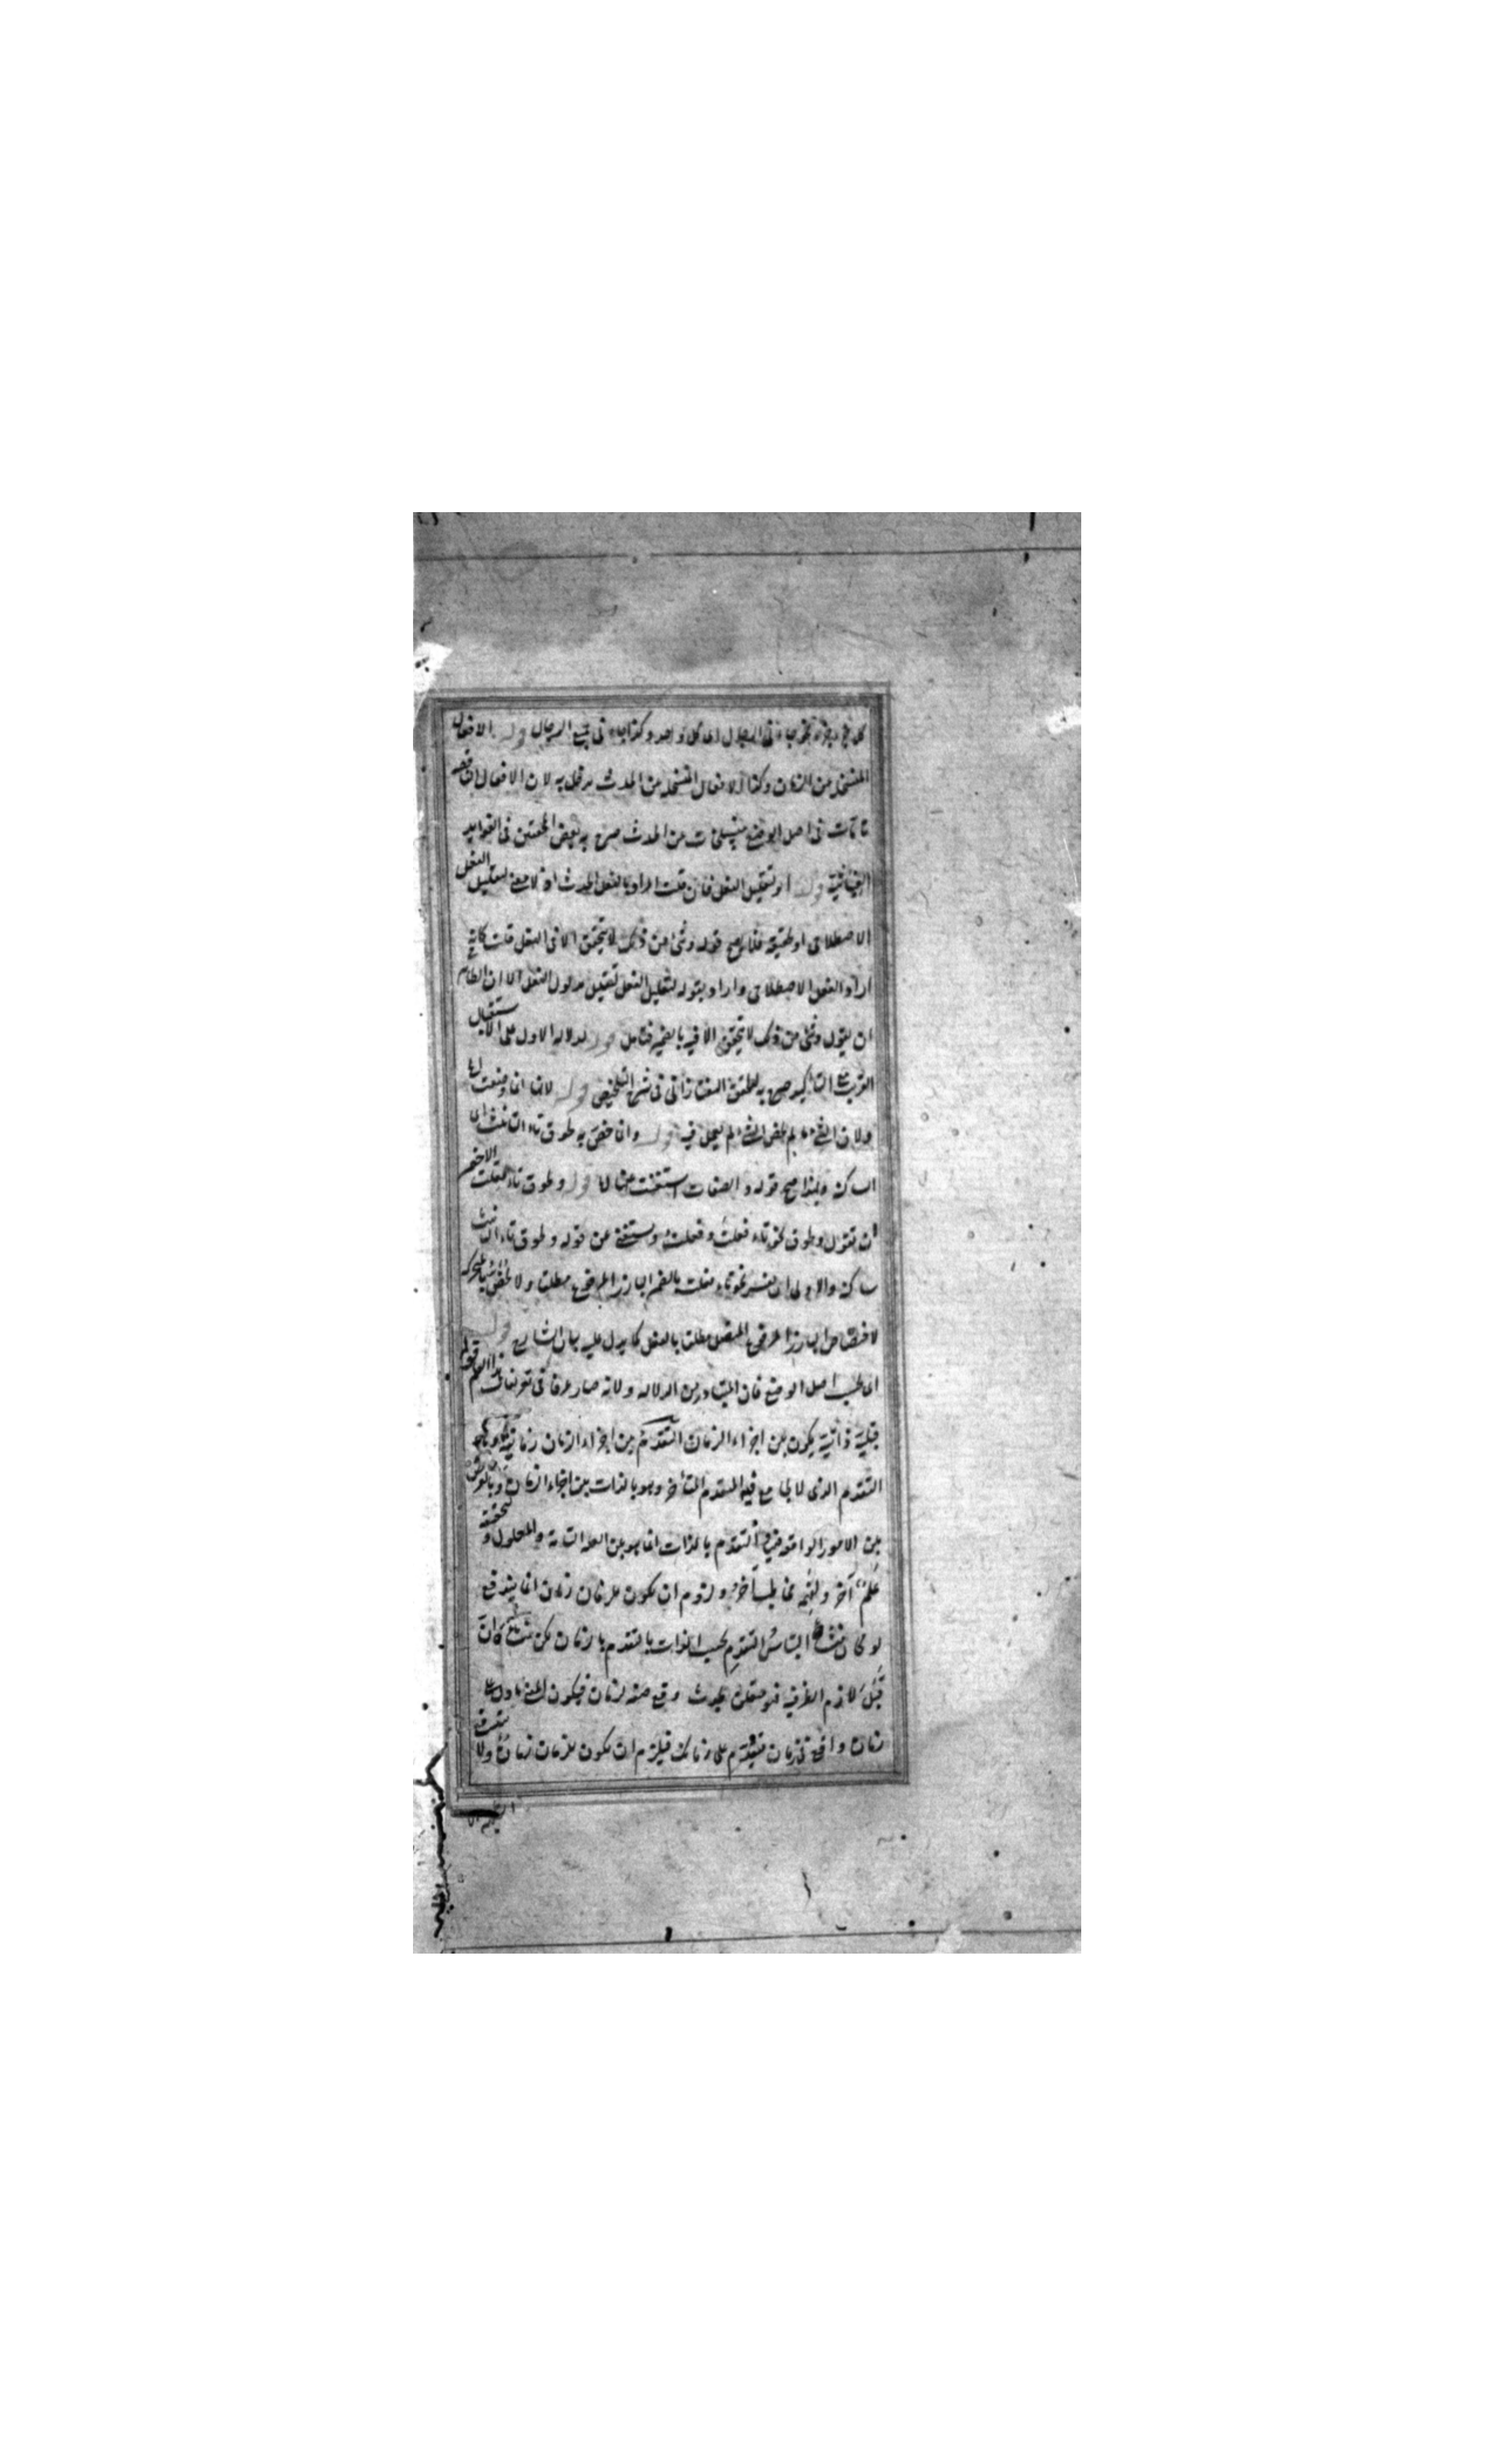 في الرجال اى كل واحد وكذا جاء في جميع الرجال قوله الافعال
المنسلخة من الزمان وكذا الافعال المنسلخة من الحدث مدخل به لان الافعال الناقصة
تامات في اصل الوضع منسلخات من الحدث صرح به بعض المحققين في الفوايد
الغياثية قوله او تقليل الفعل فان قلت المراد بالفعل الحدث اذ لا معنى لتقليل الفعل
الاصطلاحى او حقيقة فلا يصح قوله وشئ من ذلك لا يتحقق الا في الفعل قلت كانه
اراد الفعل الاصطلاحى واراد بقوله لتقليل الفعل تقليل مدلول الفعل الا ان الظاهر
ان يقول وشئ من ذلك لا يتحقق الا فيه بالضمير فتامل قوله لدلالة الاول على الاستقبال
القريب التاكيد صرح به المحقق التفتازانى في شرح التلخيص قوله لانها انما وضعت
ولان الشئ ما لم يختص بالشئ لم يعمل فيه قوله وانما خص به لحوق تاء التانيث
الساكنة ولهذا صح قوله والصفات استغنت عنها قوله ولحوق تاء فعلت الاخصر
ان يقول ولحوق نحو تاء فعلت وفعلت ويستغنى عن قوله ولحوق تاء التانيث
ساكنة والاولى ان يفسر نحو تاء فعلت بالضمير البارز المرفوع مطلقا ولا يخص
لاختصاص البارز المرفوع المتصل مطلقا بالفعل كما يدل عليه بيان الشارح قوله
اى بحسب اصل الوضع فان المتبادر من الدلالة ولانه صار عرفا في تعريفات
قبلية ذاتية يكون بين اجزاء الزمان التقدم بين اجزاء الزمان زمانى
التقدم الذى لا يجامع فيه المتقدم المتاخر وهو بالذات بين اجزاء الزمان وبالعرض
بين الامور الواقعة فيه والتقدم بالذات انما هو بين العلة التامة والمعلول وتحقيقه
علم آخر ولزوم ان يكون للزمان زمان انما يندفع
لو كان منشاؤه التباس التقدم بحسب الذات بالتقدم بالزمان لكن منشاؤه ان
قبل لازم الظرفية
زمان واقع في زمان متقدم على زمانك فيلزم ان يكون للزمان زمان ولا